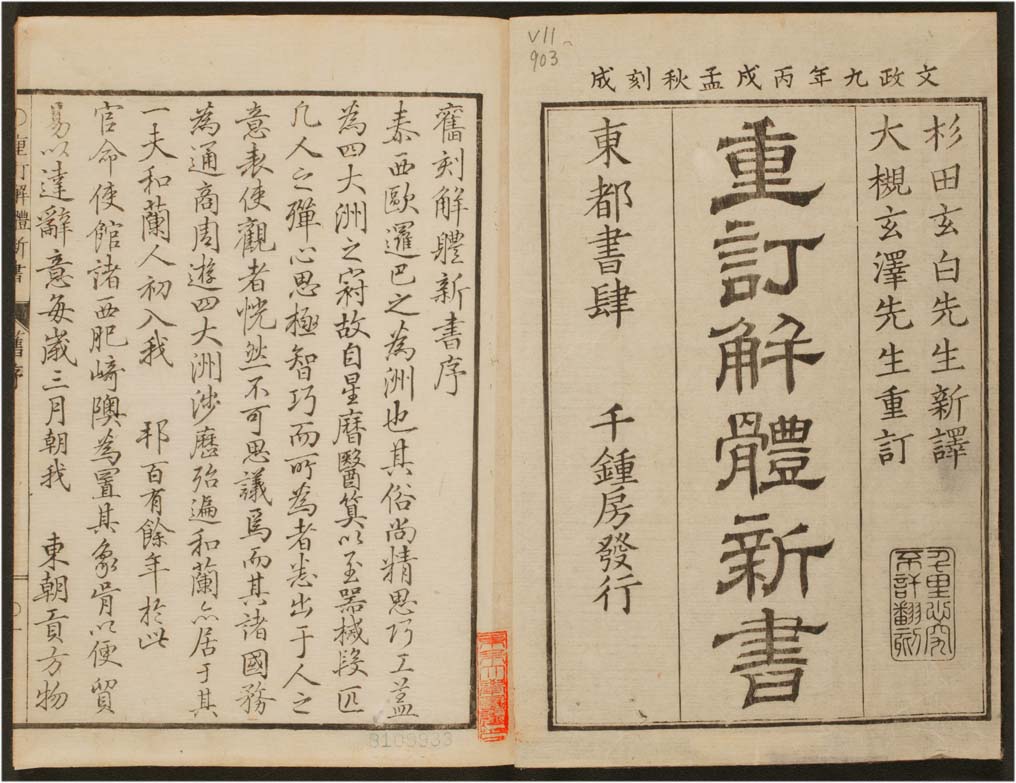 V11
903
文政九年丙戌孟秋刻成
杉田玄白先生新譯
大槻玄澤先生重訂
千里必究
不許翻刻
重訂解體新書
東都書肆 千鍾房發行
舊刻解體新書序
泰西歐邏巴之為洲也其俗尚精思巧工蓋
為四大洲之冠故自星曆醫算以至器械段匹
凡人之殫心思極智巧而所為者悉出于人之
意表使觀者恍然不可思議焉而其諸國務
為通商周遊四大洲涉歷殆遍和蘭亦居于其
一夫和蘭人初入我 邦百有餘年於此
官命使館諸西肥崎隩為置其象胥以便貿
易以達辭意每歲三月朝我 東朝貢方物
重訂解體新書 舊序
8109933